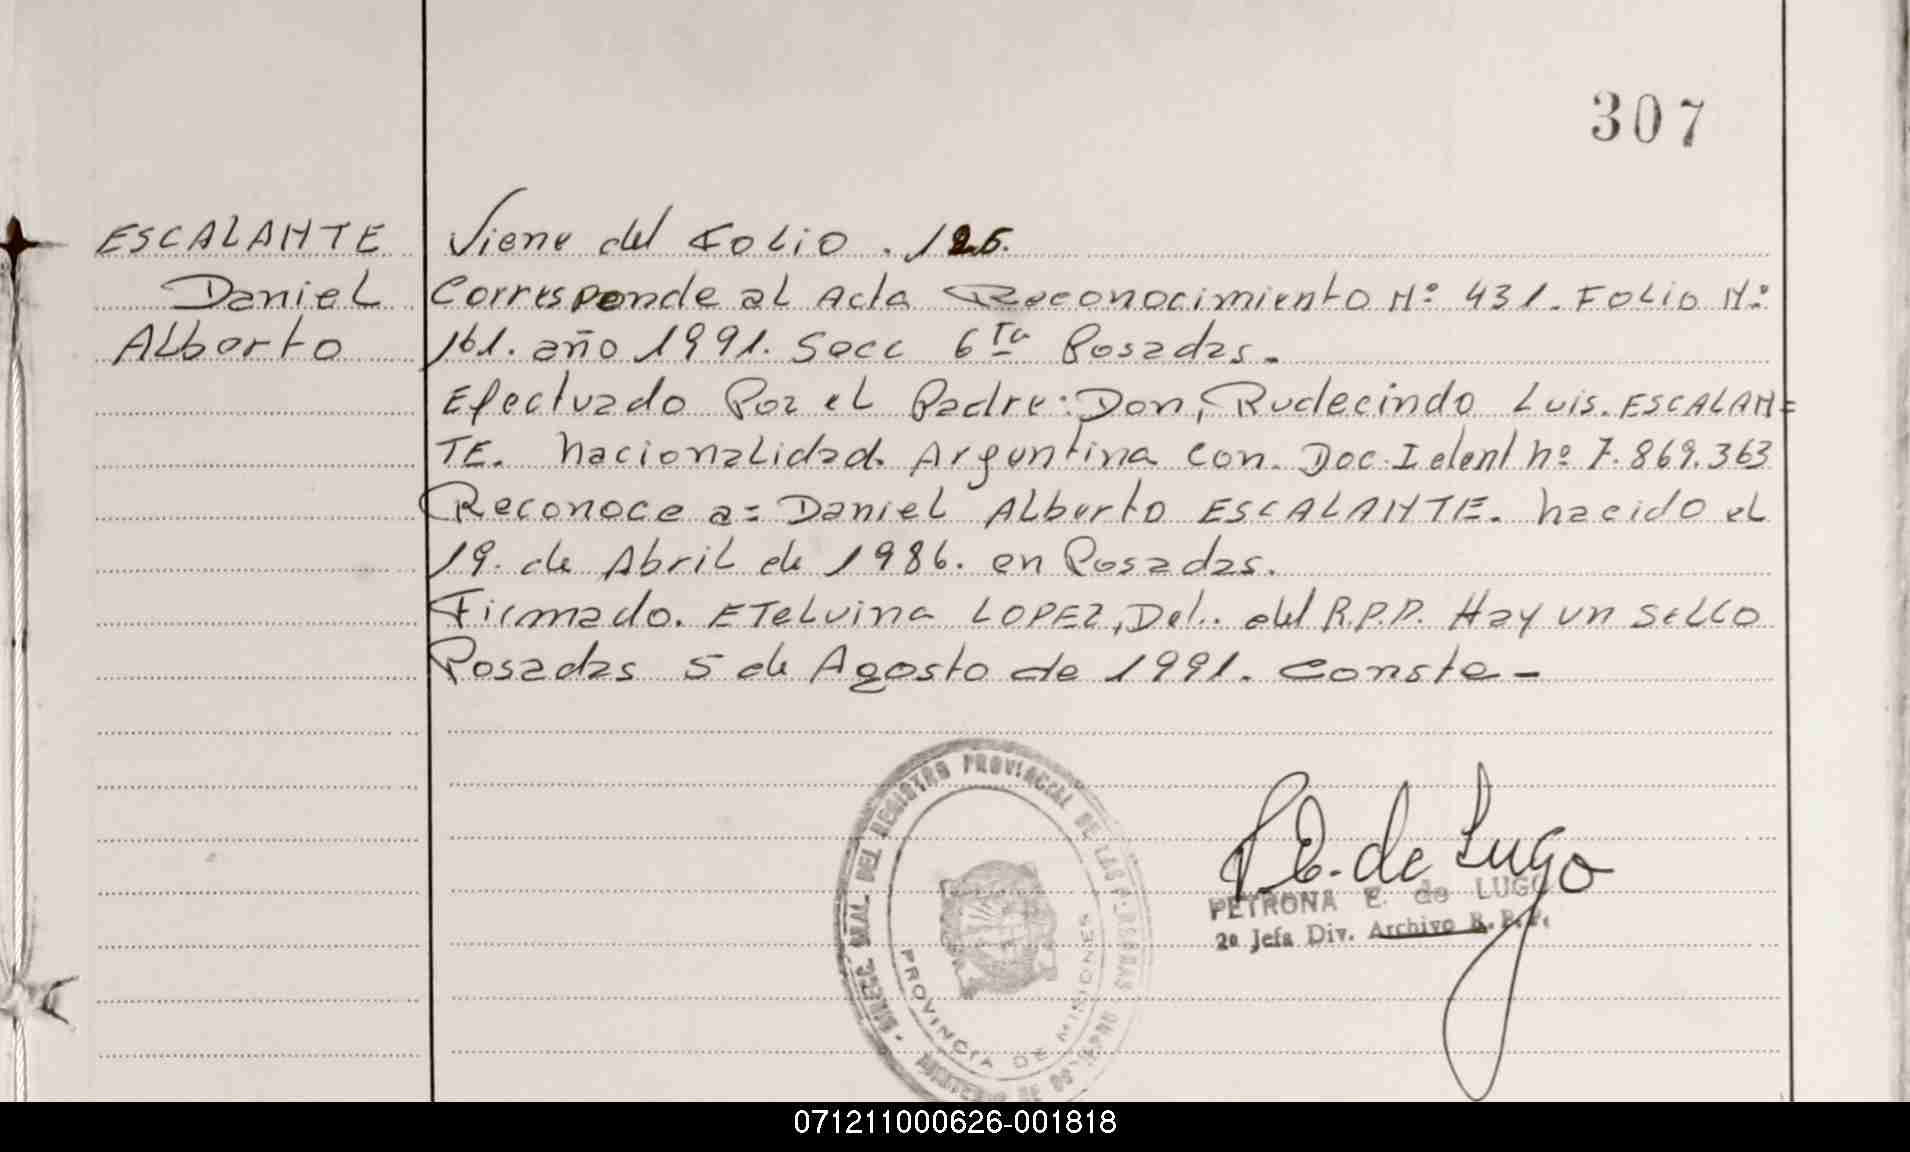 307
ESCALANTE Viene del Folio. 126.
Daniel Corresponde al Acta Reconocimiento Nº 431. Folio Nº
Alberto 161. año 1991. Secc 6Ta Posadas.
Efectuado Por el Padre: Don, Rudecindo Luis. ESCALAN=
TE. nacionalidad. Argentina Con. Doc. Ident nº 7.869.363
Reconoce a= Daniel Alberto ESCALANTE. nacido el
19. de Abril de 1986. en Posadas.
Firmado. ETeLvina LOPEZ, Del.. del R.P.P. Hay un Sello
Posadas 5 de Agosto de 1991. Conste-
DIREC. GRAL. DEL REGISTRO PROVINCIAL DE LAS PERSONAS
PROVINCIA DE MISIONES
P.E. de Lugo
PETRONA E. de LUGO
2a Jefa Div. Archivo R.P.P.
071211000626-001818